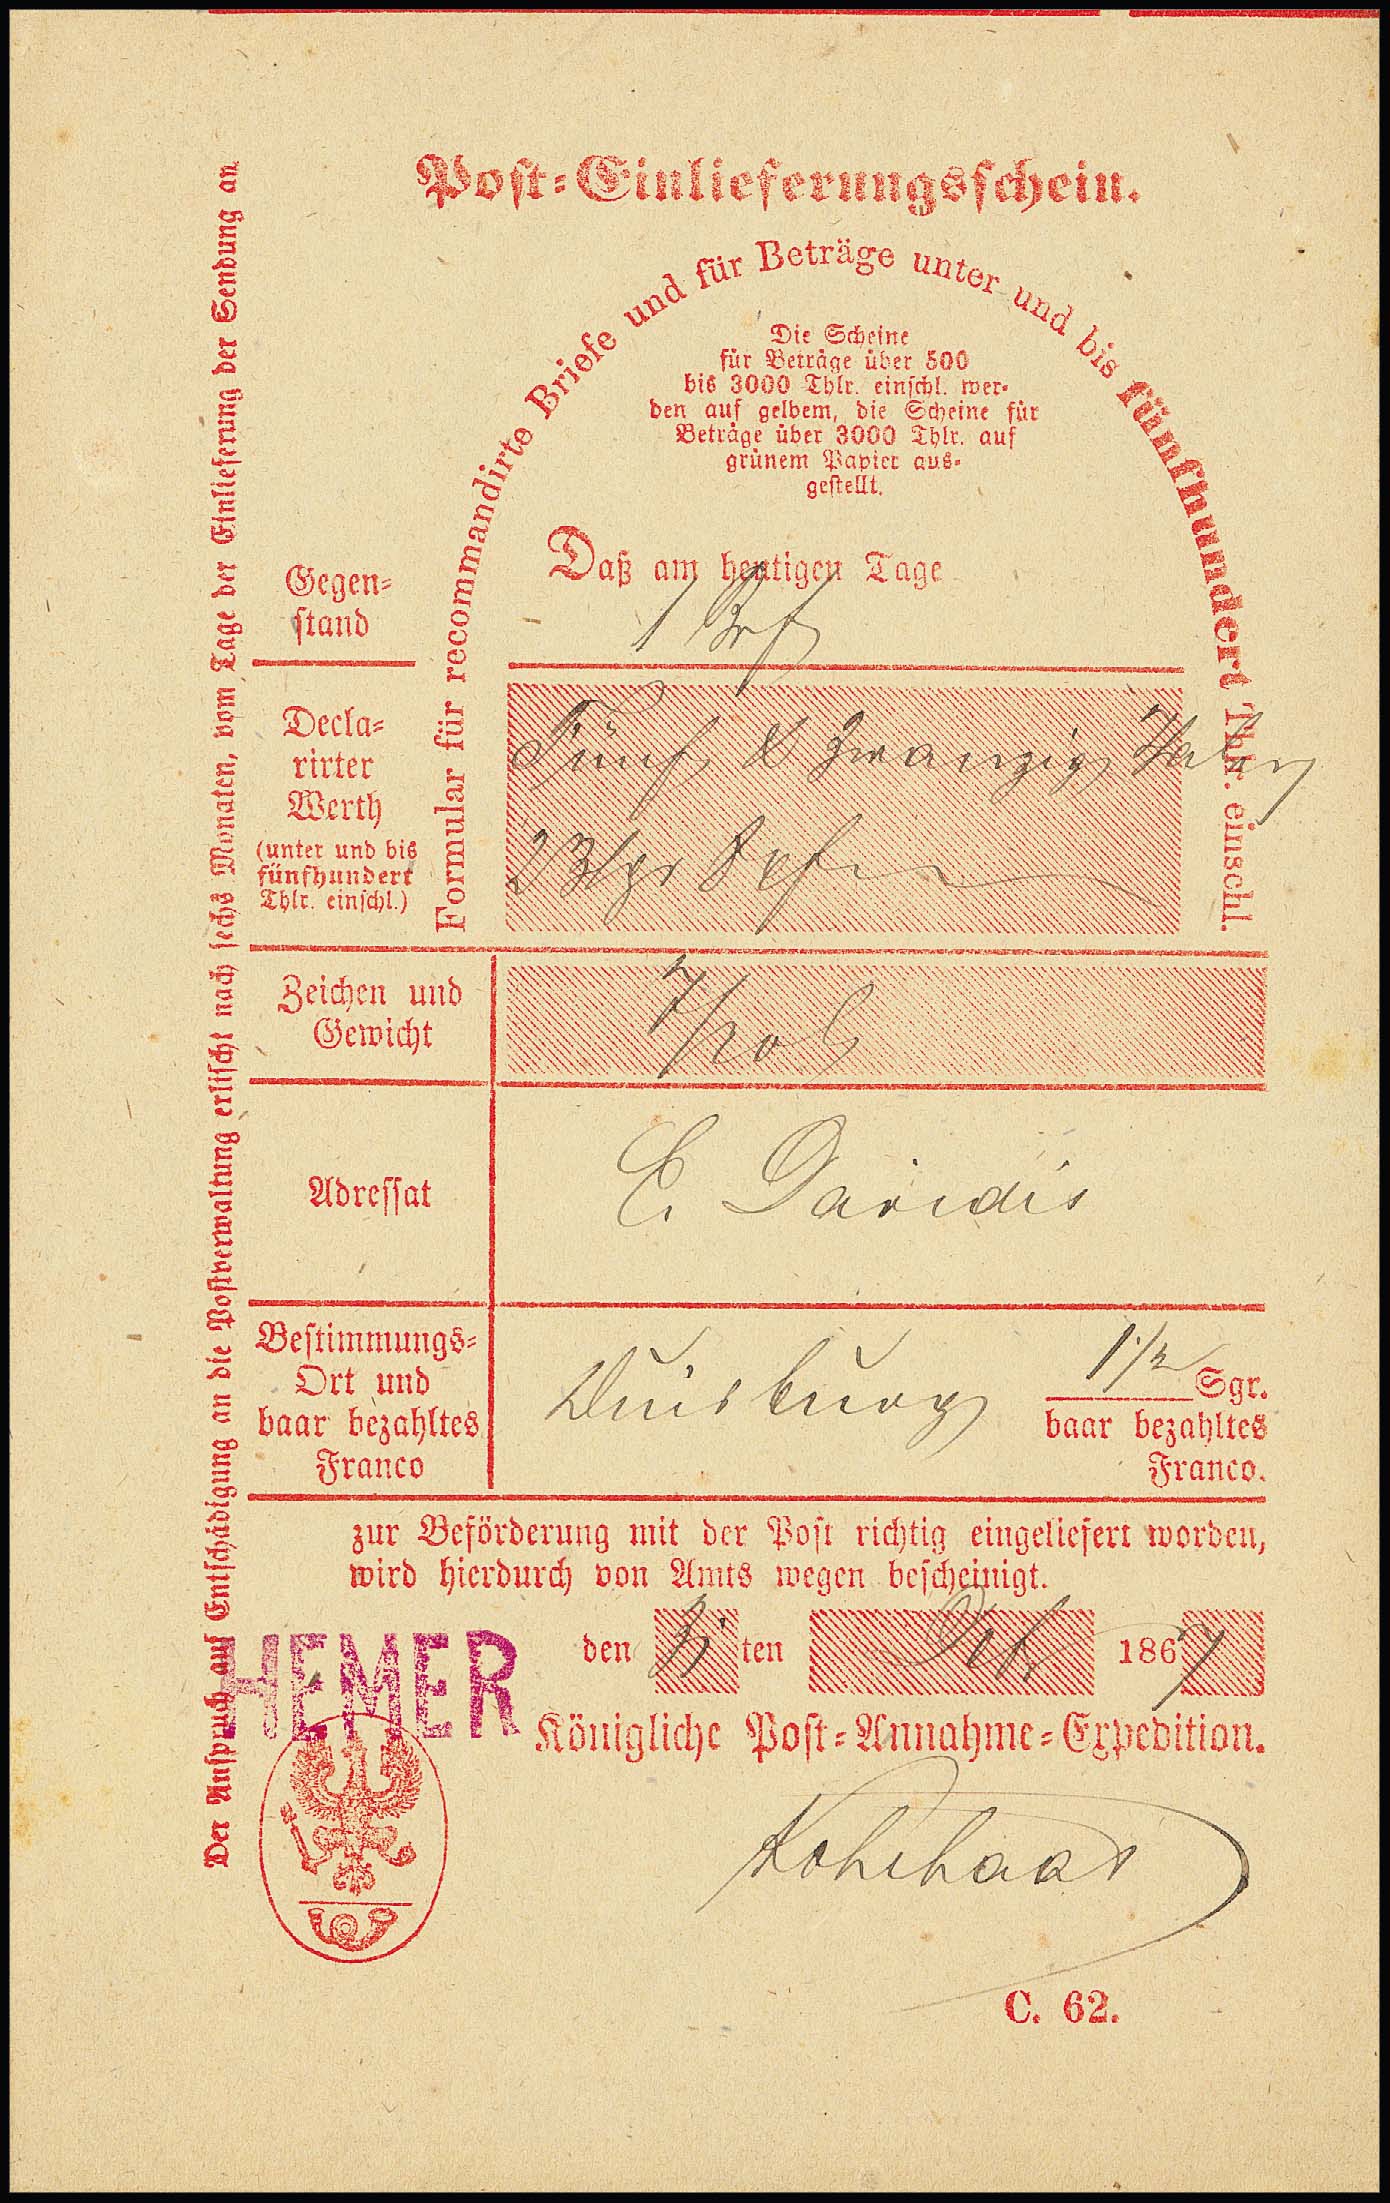 Post-Einlieferungsschein.
Formular für recommandirte Briefe und für Beträge unter und bis fünfhundert Thlr. einschl.
Die Scheine
für Beträge über 500
bis 3000 Thlr. einschl. wer-
den auf gelbem, die Scheine für
Beträge über 3000 Thlr. auf
grünem Papier aus-
gestellt.
Daß am heutigen Tage
Gegen-
stand
1 Brf
Decla-
rirter
Werth
(unter und bis
fünfhundert
Thlr. einschl.)
Fünf & zwanzig Taler
Zeichen und
Gewicht
Adressat
E. Davidis
Bestimmungs-
Ort und
baar bezahltes
Franco
Duisburg
1 1/2 Sgr.
baar bezahltes
Franco.
zur Beförderung mit der Post richtig eingeliefert worden,
wird hierdurch von Amts wegen bescheinigt.
den 3i ten 1867
HEMER
Königliche Post-Annahme-Expedition.
C. 62.
Der Anspruch auf Entschädigung an die Postverwaltung erlischt nach sechs Monaten, vom Tage der Einlieferung der Sendung an